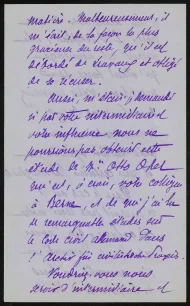 matière. Malheureusement, il
m'écrit, de la façon la plus
gracieuse du reste, qu'il est
débordé de travaux et obligé
de se récuser.
Aussi, m'étais-je demandé
si par votre intermédiaire et
votre influence nous ne
pourrions pas obtenir cette
étude de Mr Otto Opet
qui est, je crois, votre collègue
à Berne, et de qui j'ai lu
de remarquables études sur
le Code civil allemand dans
l'
Voudriez-vous nous
servir d'intermédiaire et